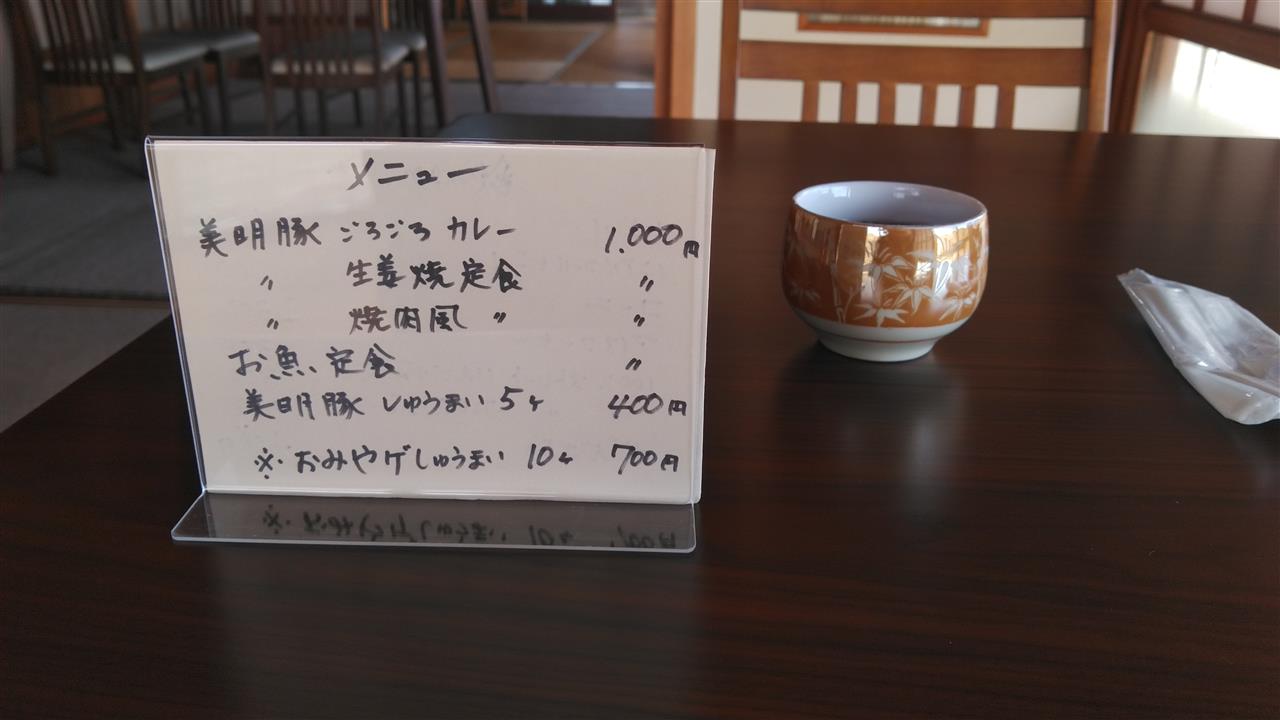 メニュー
美明豚 ごろごろ カレー 1,000円
〃 生姜焼定食 〃
〃 焼肉風 〃 〃
お魚定食 〃
美明豚 しゅうまい 5ヶ 400円
※おみやげしゅうまい 10ヶ 700円